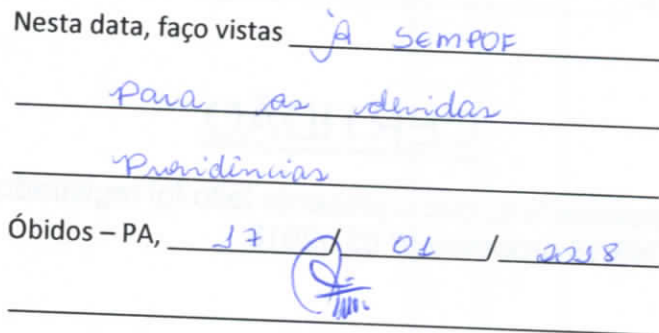 Nesta data, faço vistas À SEMPOF
para as devidas
Providências
Óbidos – PA, 17 / 01 / 2018